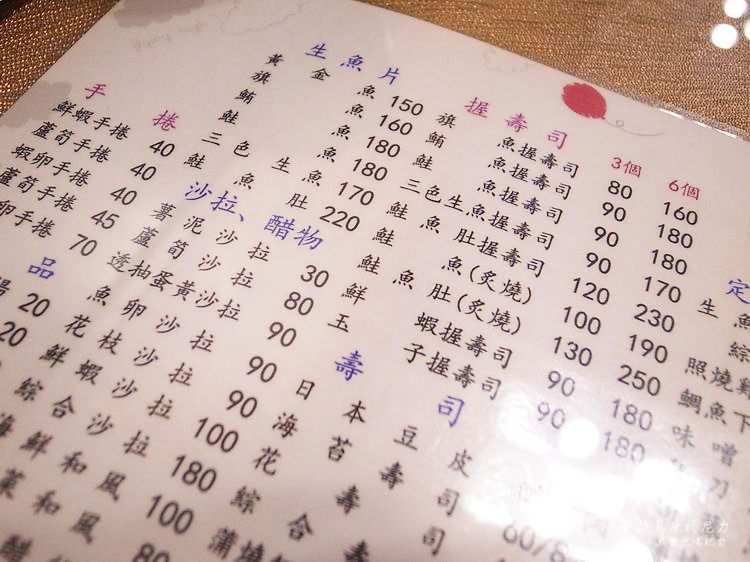 生魚片
黃金魚 150
旗魚 160
鮪魚 180
鮭魚 180
三色生魚 170
鮭魚肚 220
握壽司 3個 6個
旗魚握壽司 80 160
鮪魚握壽司 90 180
鮭魚握壽司 90 180
三色生魚握壽司 90 170
鮭魚肚握壽司 120 230
鮭魚(炙燒) 100 190
鮭魚肚(炙燒) 130 250
鮮蝦握壽司 90 180
玉子握壽司 90 180
手捲
鮮蝦手捲 40
蘆筍手捲 40
蝦卵手捲 40
蘆筍手捲 45
卵手捲 70
沙拉、醋物
薯泥沙拉 30
蘆筍沙拉 80
透抽蛋黃沙拉 90
魚卵沙拉 90
花枝沙拉 90
鮮蝦沙拉 100
綜合沙拉 180
海鮮和風 100
和風 80
品
湯 20
20
壽司
日本豆皮
海苔壽司
花壽司
綜合壽司
蒲燒
60/8
定
生魚
綜
照燒雞
鯛魚下
味噌